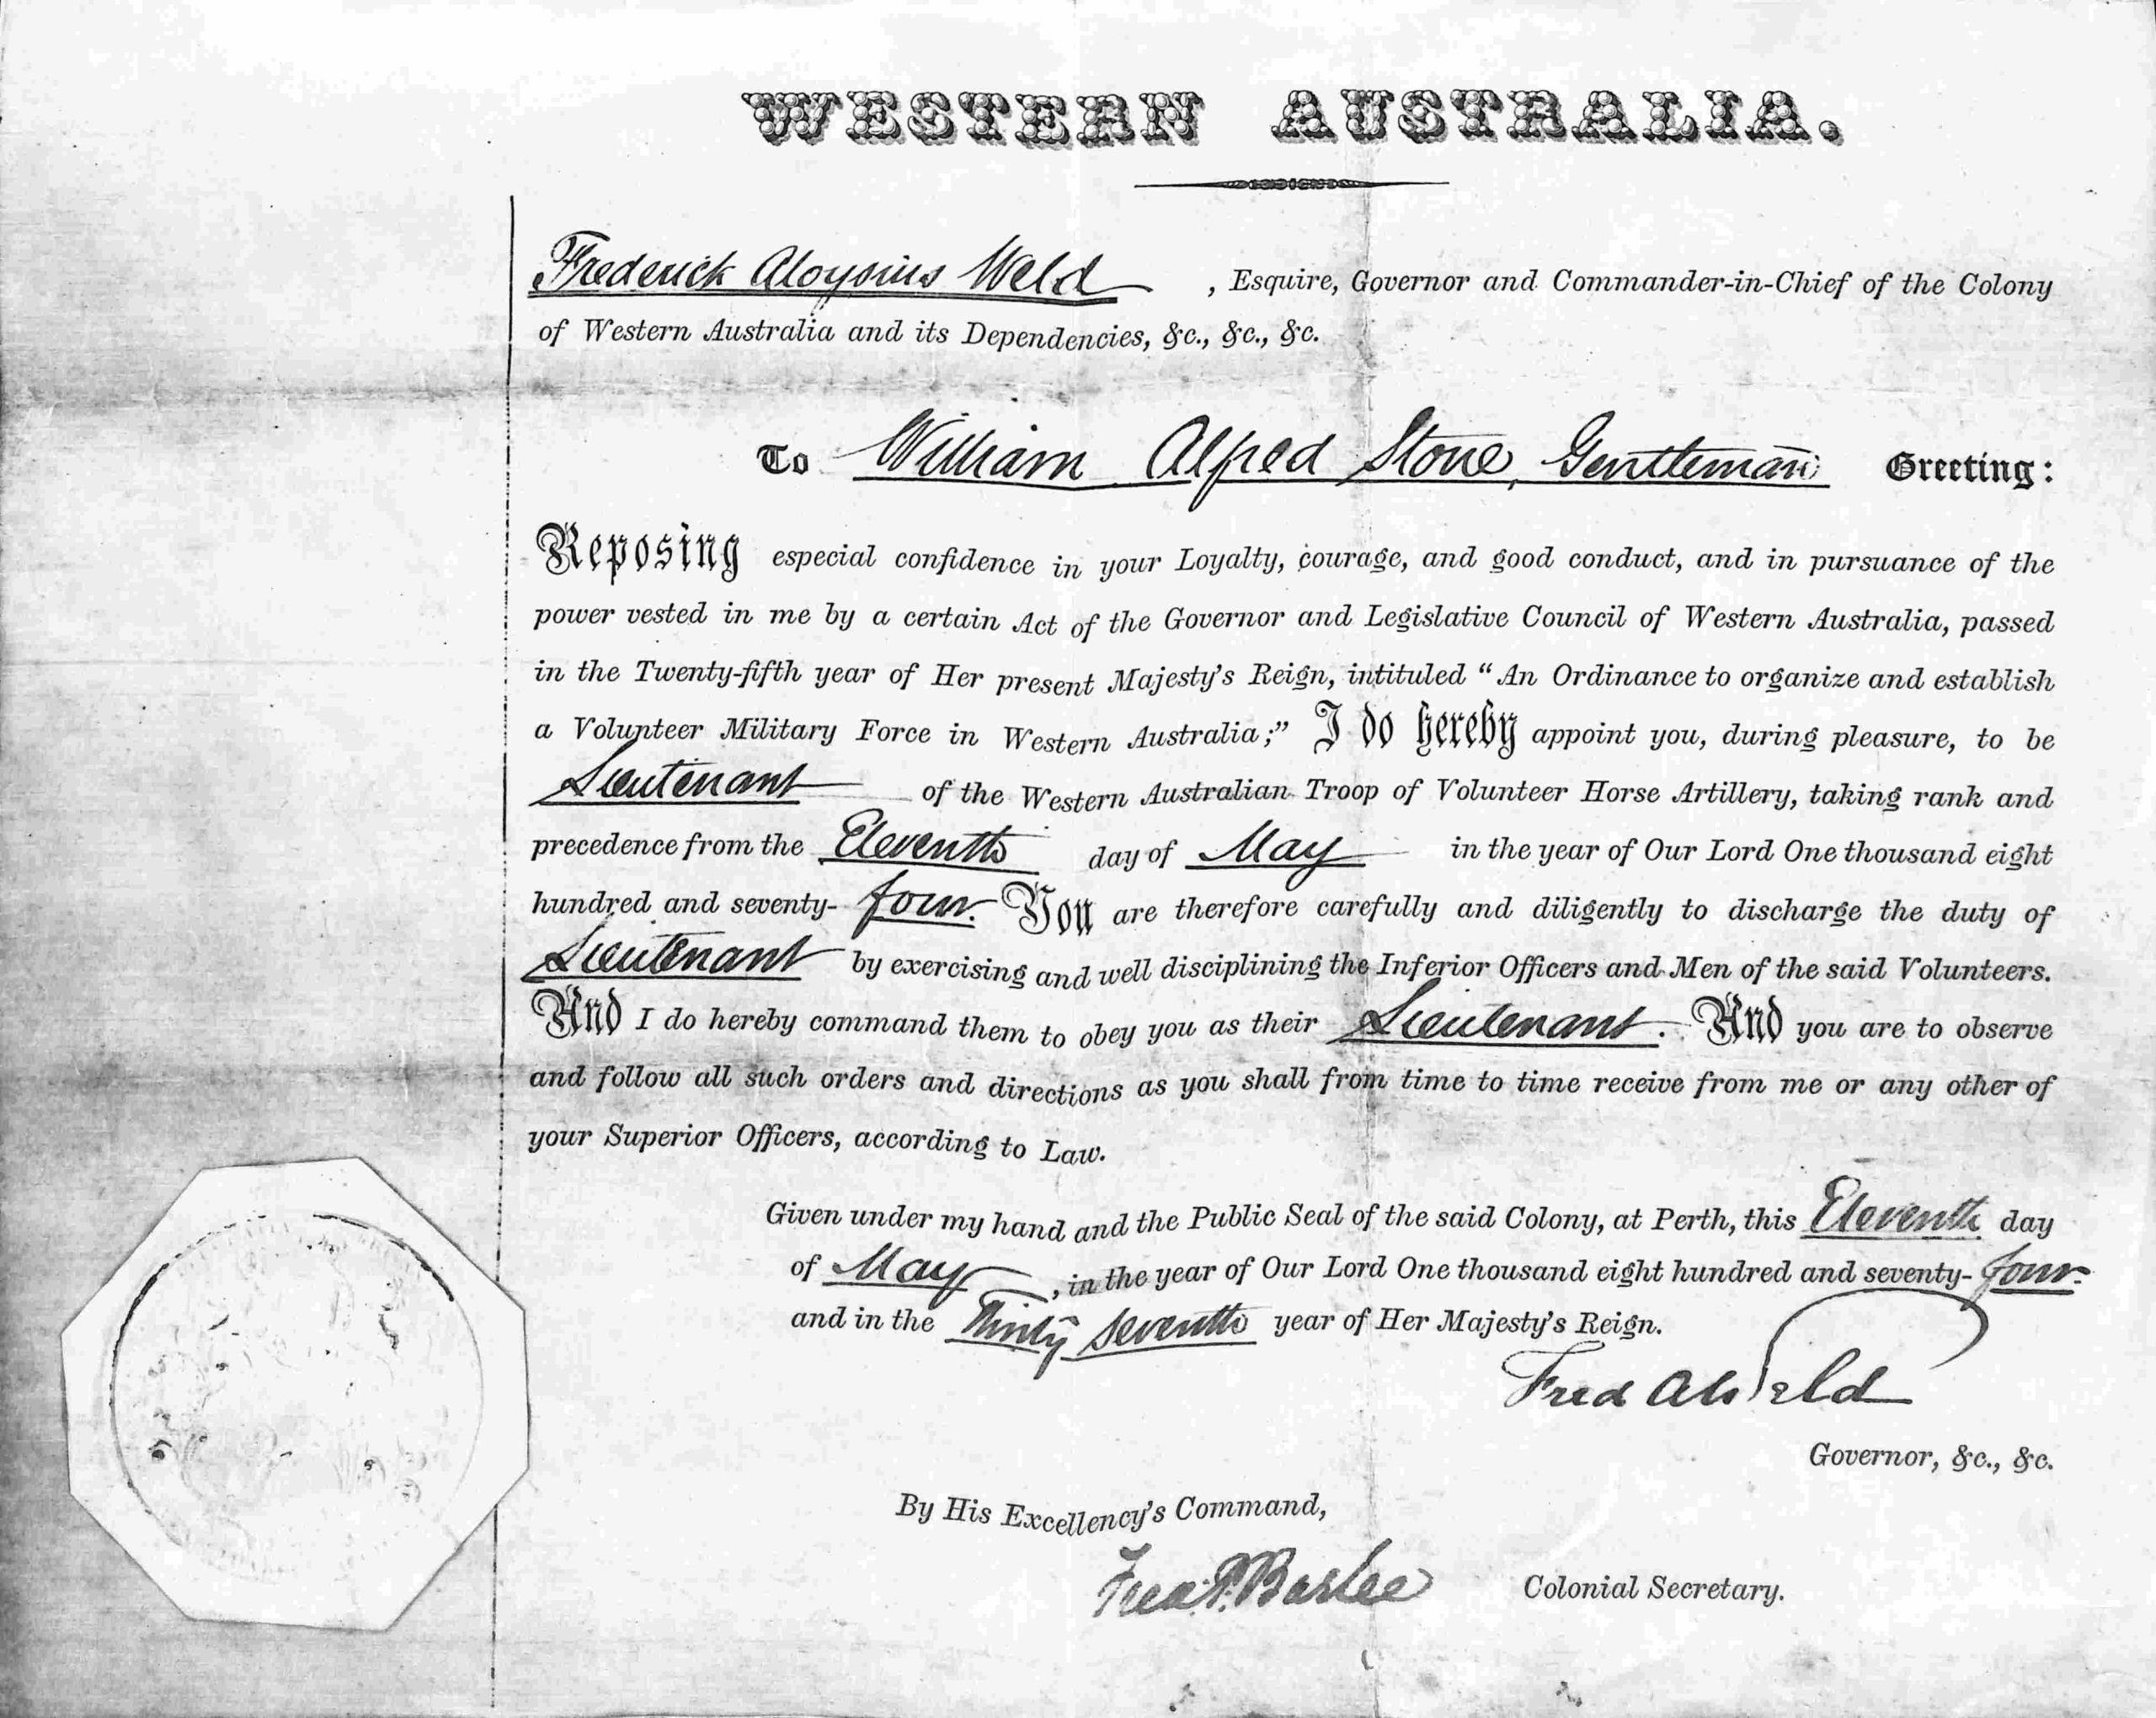 WESTERN AUSTRALIA.
Frederick Aloysius Weld, Esquire, Governor and Commander-in-Chief of the Colony
of Western Australia and its Dependencies, &c., &c., &c.
To William Alfred Stone, Gentleman Greeting:
Reposing especial confidence in your Loyalty, courage, and good conduct, and in pursuance of the
power vested in me by a certain Act of the Governor and Legislative Council of Western Australia, passed
in the Twenty-fifth year of Her present Majesty's Reign, intituled "An Ordinance to organize and establish
a Volunteer Military Force in Western Australia;" I do hereby appoint you, during pleasure, to be
Lieutenant of the Western Australian Troop of Volunteer Horse Artillery, taking rank and
precedence from the Eleventh day of May in the year of Our Lord One thousand eight
hundred and seventy-four. You are therefore carefully and diligently to discharge the duty of
Lieutenant by exercising and well disciplining the Inferior Officers and Men of the said Volunteers.
And I do hereby command them to obey you as their Lieutenant. And you are to observe
and follow all such orders and directions as you shall from time to time receive from me or any other of
your Superior Officers, according to Law.
Given under my hand and the Public Seal of the said Colony, at Perth, this Eleventh day
of May, in the year of Our Lord One thousand eight hundred and seventy-four.
and in the Thirty seventh year of Her Majesty's Reign.
Fred A Weld
Governor, &c., &c.
By His Excellency's Command,
Fred P. Barlee Colonial Secretary.